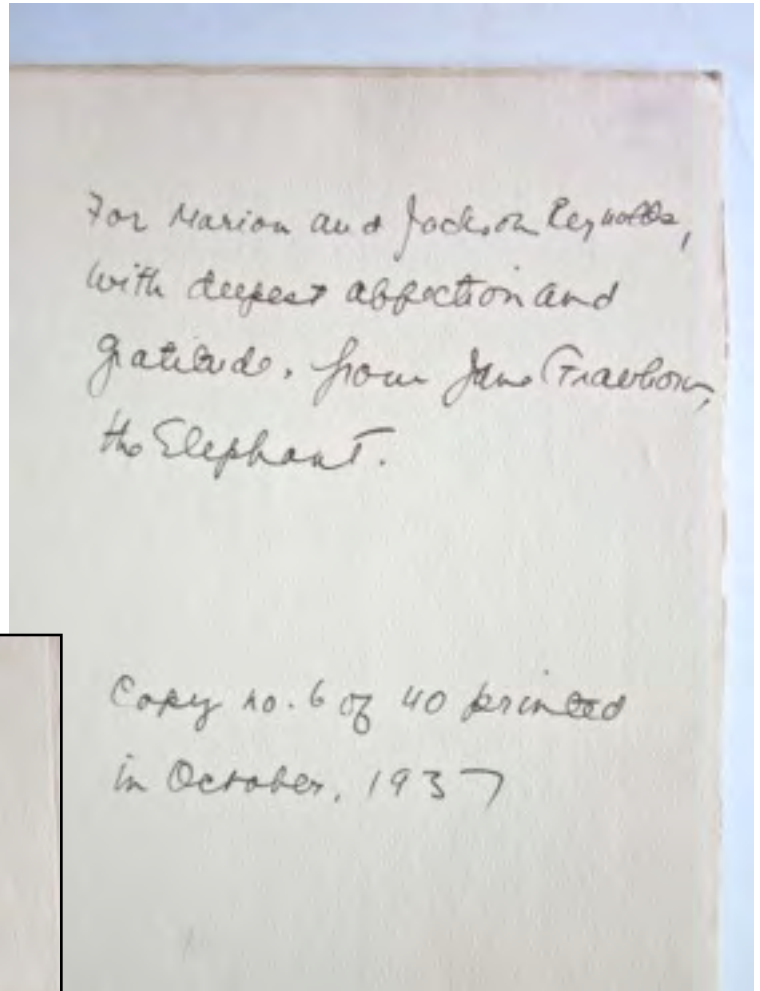 For Marion and Jackson Reynolds,
with deepest affection and
gratitude, from Jane Grabhorn,
the Elephant.
Copy no. 6 of 40 printed
in October, 1937